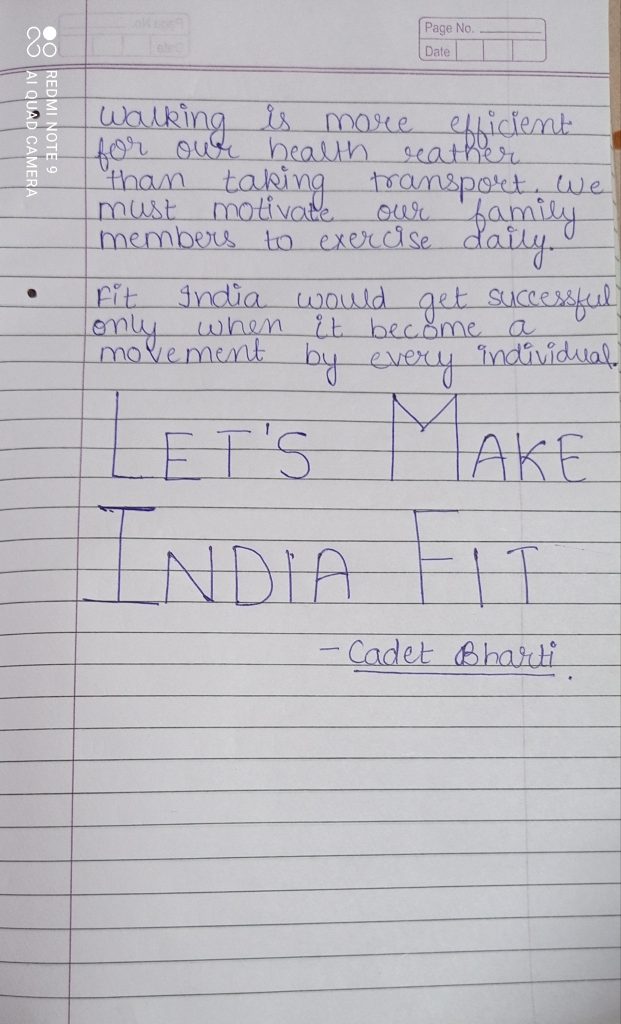 Page No.
Date
REDMI NOTE 9
AI QUAD CAMERA
• Walking is more efficient
for our health reather
than taking transport. We
must motivate our family
members to exercise daily.
• Fit India would get successful
only when it become a
movement by every individual.
LET'S MAKE
INDIA FIT
- Cadet Bharti.